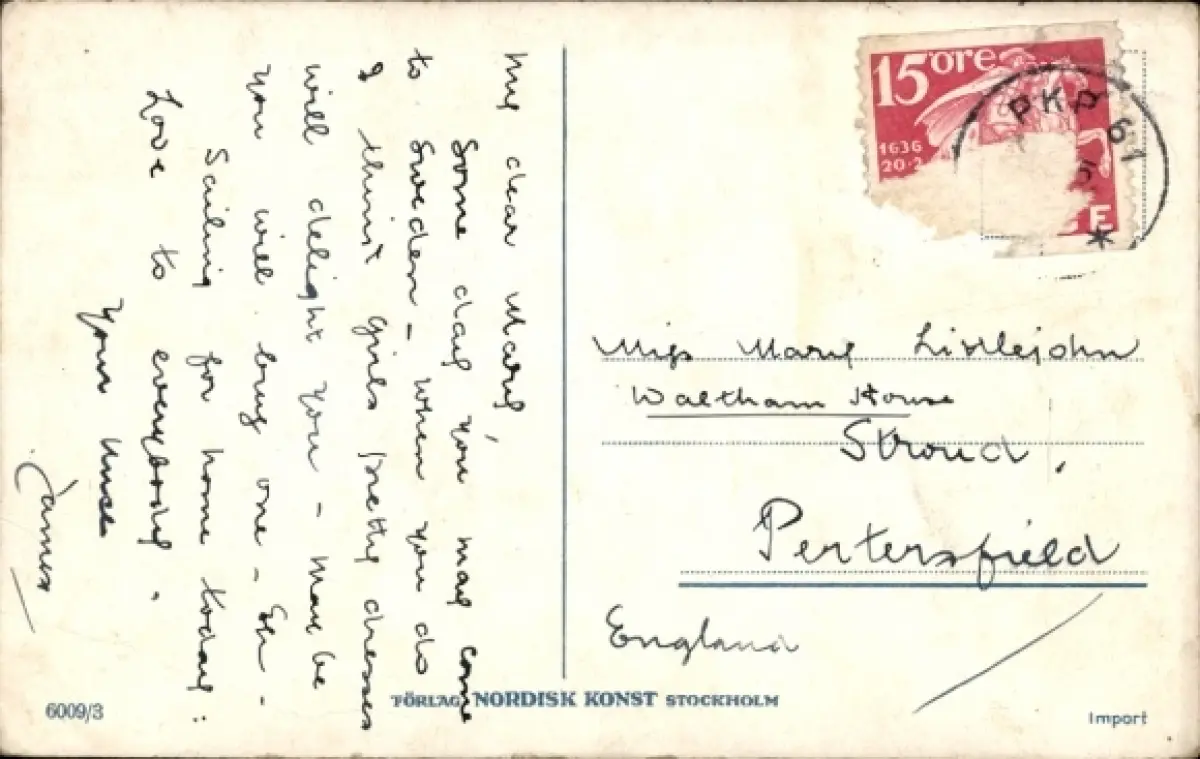 My dear Mary,
Some day you may come
to Sweden - when you do
I think girls pretty dresses
will delight you - may be
you will bring one -
Sailing for home today.
Love to everybody.
Yours
James
15 öre
1636
20·2
PKP 61
5
E
*
Miss Mary Littlejohn
Waltham House
Stroud,
Pertersfield
England
6009/3
FÖRLAG NORDISK KONST STOCKHOLM
Import